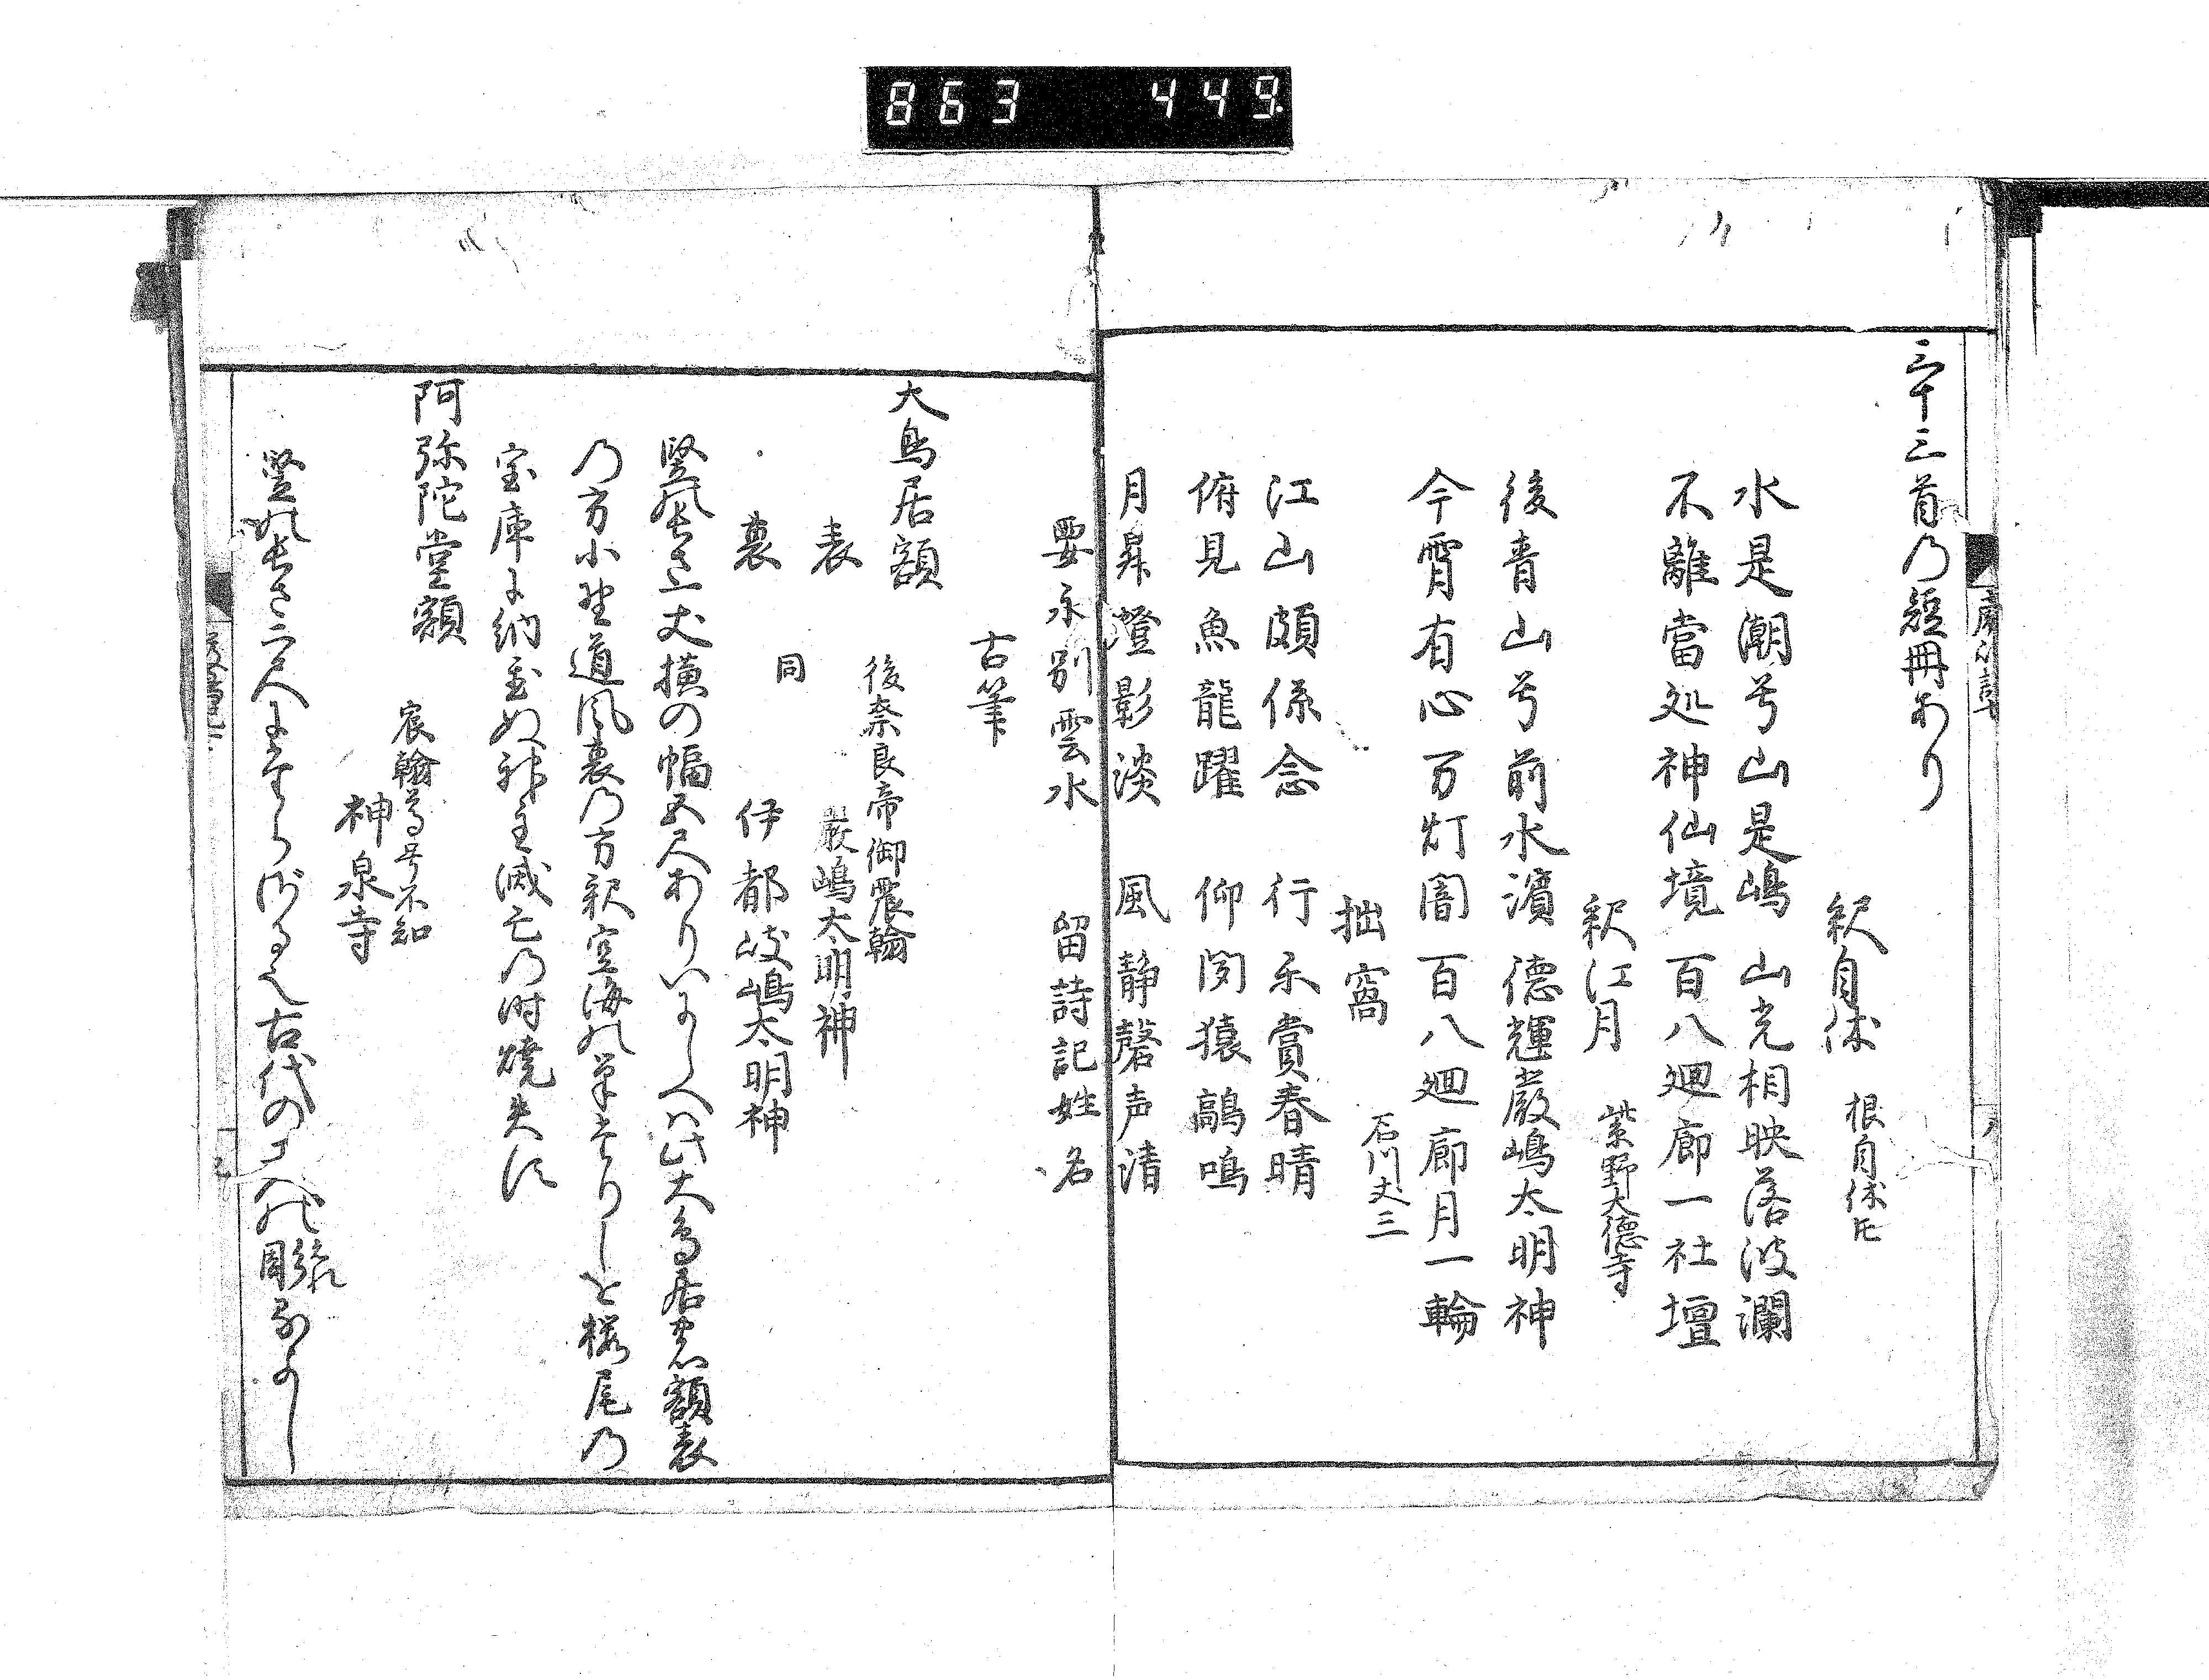 863 449.
三十三首乃短冊あり
釈自休 根自休氏
水是潮兮山是嶋 山光相映落波瀾
不離當処神仙境 百八廻廊一社壇
釈江月 紫野大徳寺
後青山兮前水濱 徳輝嚴嶋太明神
今宵有心万灯闇 百八廻廊月一輪
拙窩 石川丈三
江山頗係念 行乐賞春晴
俯見魚龍躍 仰聞猿鷸鳴
月昇燈影淡 風静磬声清
要永別雲水 留詩記姓名
古筆
大鳥居額 後奈良帝御震翰
表 嚴嶋太明神
裏 同 伊都岐嶋太明神
竪の長さ一丈横の幅五尺ありいにしへハ此大鳥居の額表
乃方小野道風裏乃方釈空海の筆なりしを楼尾乃
宝庫に納至ぬ神主滅亡乃時焼失に
阿弥陀堂額 宸翰尊号不知
神泉寺
竪の長さ二尺にたらざる之古代の工人の彫なるよし